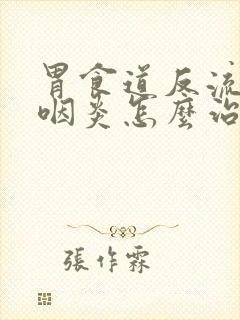 胃食道反流
咽炎怎麼治
張作霖